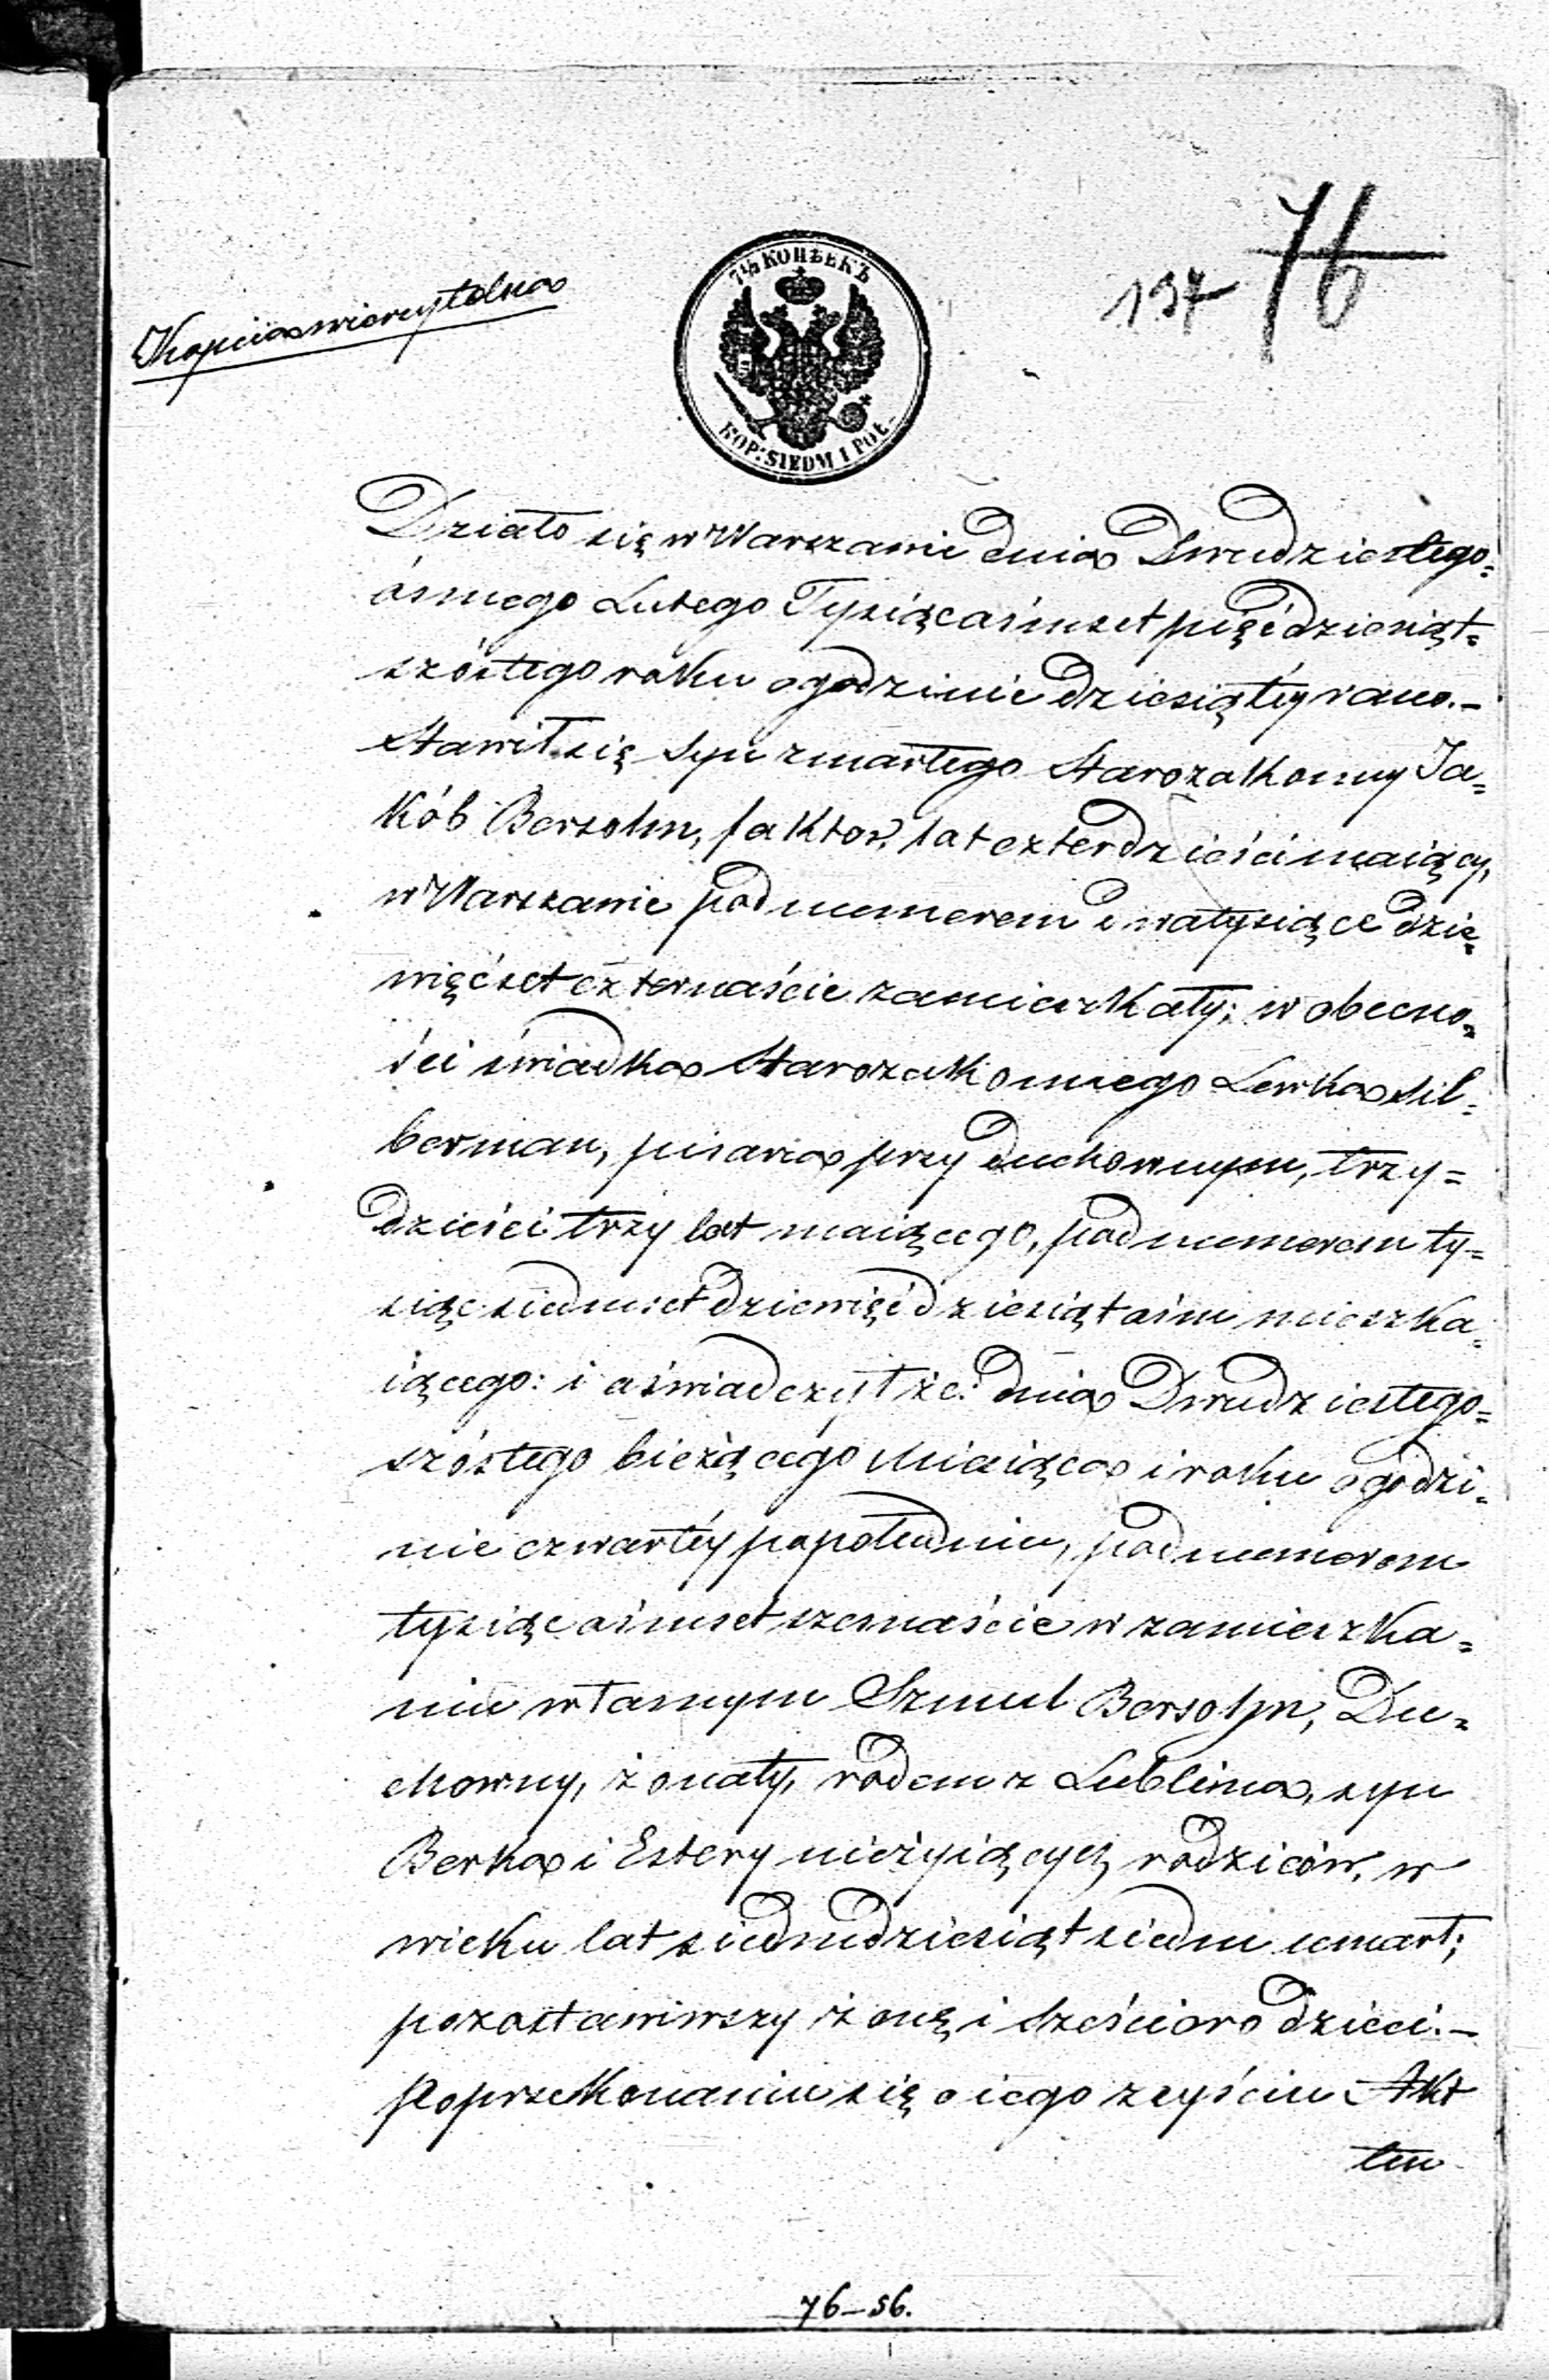 76
197
Kopiia wierzytelna
7½ КОПѢЕКЪ
KOP: SIEDM I POŁ.
Działo się w Warszawie dnia Dwudziestego=
ósmego Lutego Tysiąc ośmset pięćdziesiąt=
szóstego roku o godzinie dziesiątéy rano.-
Stawił się Syn zmarłego Starozakonny Ja=
kób Bersohn, faktor, lat czterdzieści maiący,
w Warszawie pod numerem dwa tysiące dzie=
więćset czternaście zamieszkały; w obecno=
ści świadka Starozakonnego Lewka Sil=
berman, pisarza przy duchownym, trzy=
dzieści trzy lat maiącego, pod numerem ty=
siąc siedmset dziewięćdziesiąt ośm mieszka=
iącego: i oświadczył że: dnia Dwudziestego=
szóstego bieżącego Miesiąca i roku o godzi=
nie czwartéy popołudniu, pod numerem
tysiąc ośmset szesnaście w zamieszka=
niu własnym Szmul Bersohn, Du=
chowny, żonaty, rodem z Lublina, syn
Berka i Estery nieżyiących rodziców, w
wieku lat siedmdziesiąt siedm umarł;
pozostawiwszy żonę i sześcioro dzieci.-
Po przekonaniu się o iego zeyściu Akt
ten
76-56.